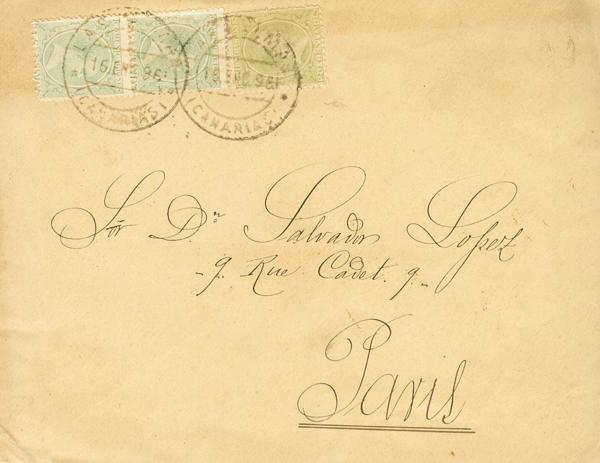 16 ENE 96
(CANARIAS)
16 ENE 96
(CANARIAS)
Sór D.n Salvador Lopez
- 9. Rue Cadet. 9 -
Paris